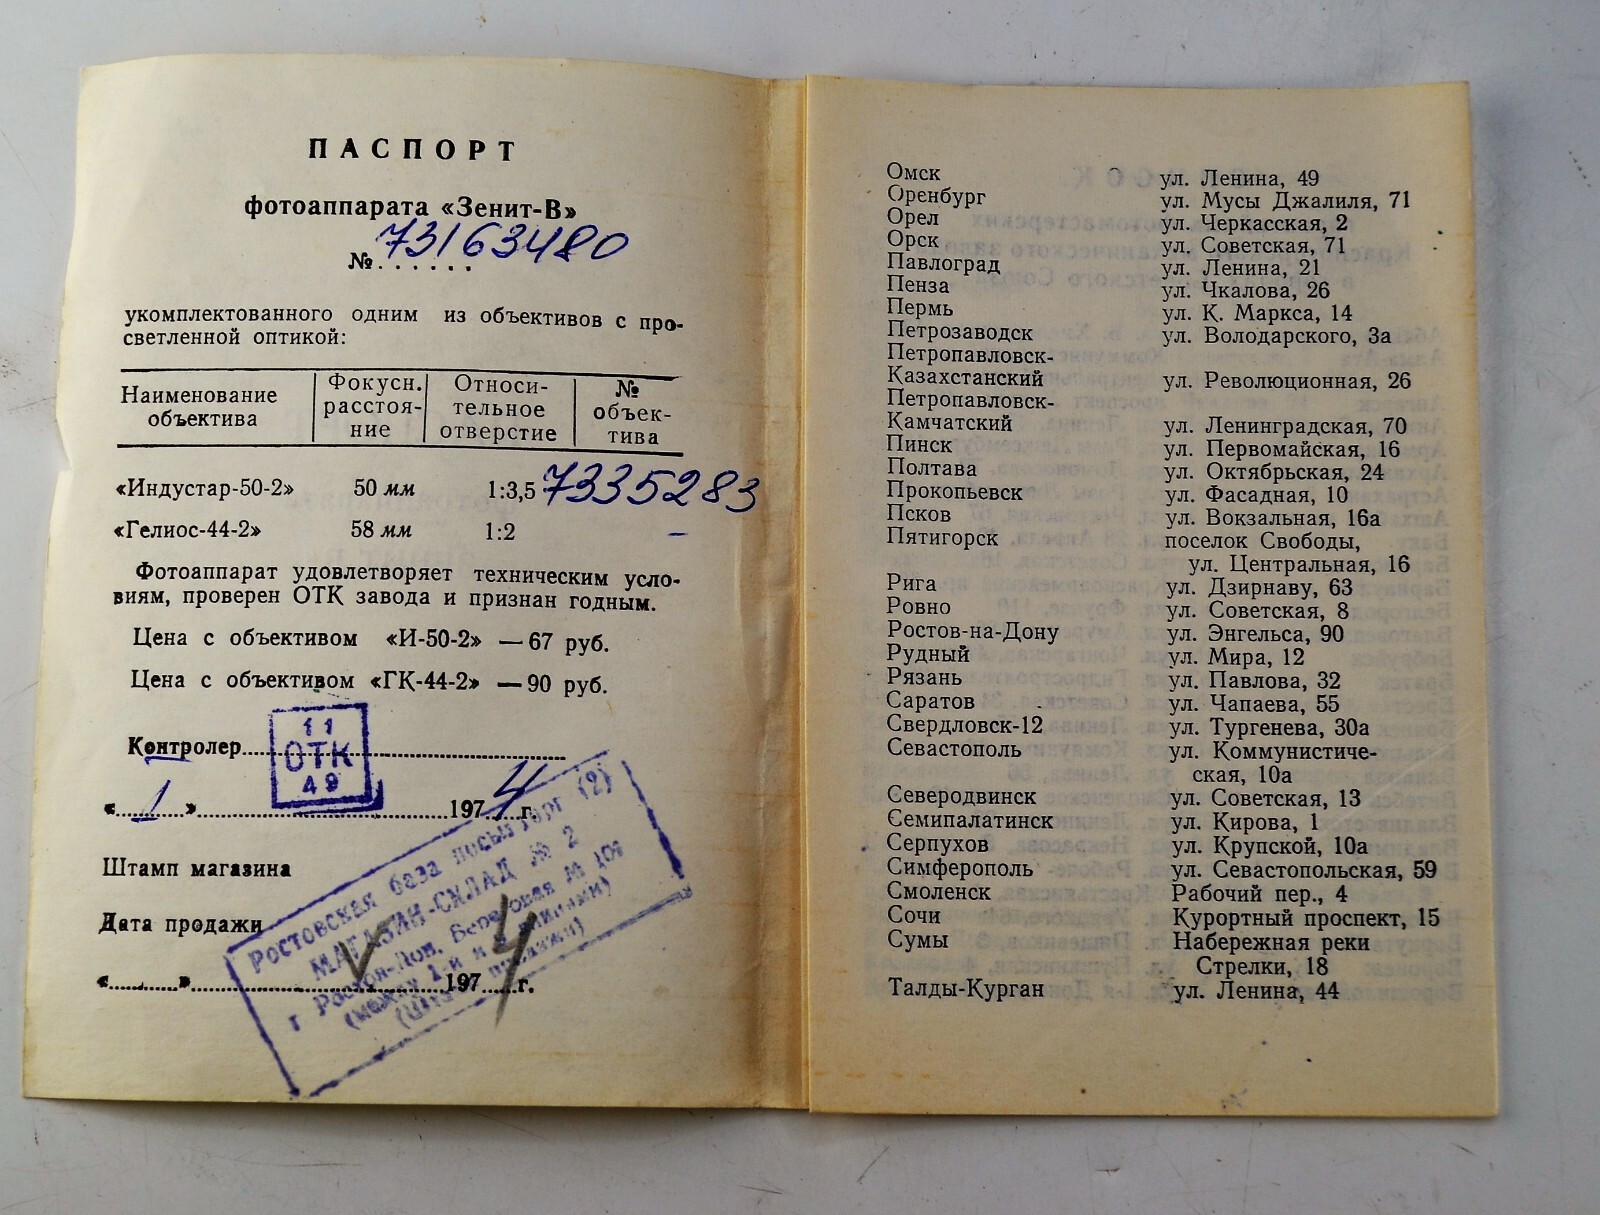 ПАСПОРТ
фотоаппарата «Зенит-В»
№ 73163480
укомплектованного одним из объективов с про-
светленной оптикой:
Наименование объектива Фокусн. расстоя- ние Относи- тельное отверстие № объек- тива
«Индустар-50-2» 50 мм 1:3,5 7335283
«Гелиос-44-2» 58 мм 1:2 –
Фотоаппарат удовлетворяет техническим усло-
виям, проверен ОТК завода и признан годным.
Цена с объективом «И-50-2» — 67 руб.
Цена с объективом «ГК-44-2» — 90 руб.
11
Контролер
ОТК
49
«1» 1974 г.
Штамп магазина
Дата продажи
«V» 1974 г.
Ростовская база посылторг (2)
МАГАЗИН-СКЛАД № 2
г Ростов-Дон, Береговая №
(между 1-й и линиями)
Омск ул. Ленина, 49
Оренбург ул. Мусы Джалиля, 71
Орел ул. Черкасская, 2
Орск ул. Советская, 71
Павлоград ул. Ленина, 21
Пенза ул. Чкалова, 26
Пермь ул. К. Маркса, 14
Петрозаводск ул. Володарского, 3а
Петропавловск-
Казахстанский ул. Революционная, 26
Петропавловск-
Камчатский ул. Ленинградская, 70
Пинск ул. Первомайская, 16
Полтава ул. Октябрьская, 24
Прокопьевск ул. Фасадная, 10
Псков ул. Вокзальная, 16а
Пятигорск поселок Свободы,
ул. Центральная, 16
Рига ул. Дзирнаву, 63
Ровно ул. Советская, 8
Ростов-на-Дону ул. Энгельса, 90
Рудный ул. Мира, 12
Рязань ул. Павлова, 32
Саратов ул. Чапаева, 55
Свердловск-12 ул. Тургенева, 30а
Севастополь ул. Коммунистиче-
ская, 10а
Северодвинск ул. Советская, 13
Семипалатинск ул. Кирова, 1
Серпухов ул. Крупской, 10а
Симферополь ул. Севастопольская, 59
Смоленск Рабочий пер., 4
Сочи Курортный проспект, 15
Сумы Набережная реки
Стрелки, 18
Талды-Курган ул. Ленина, 44